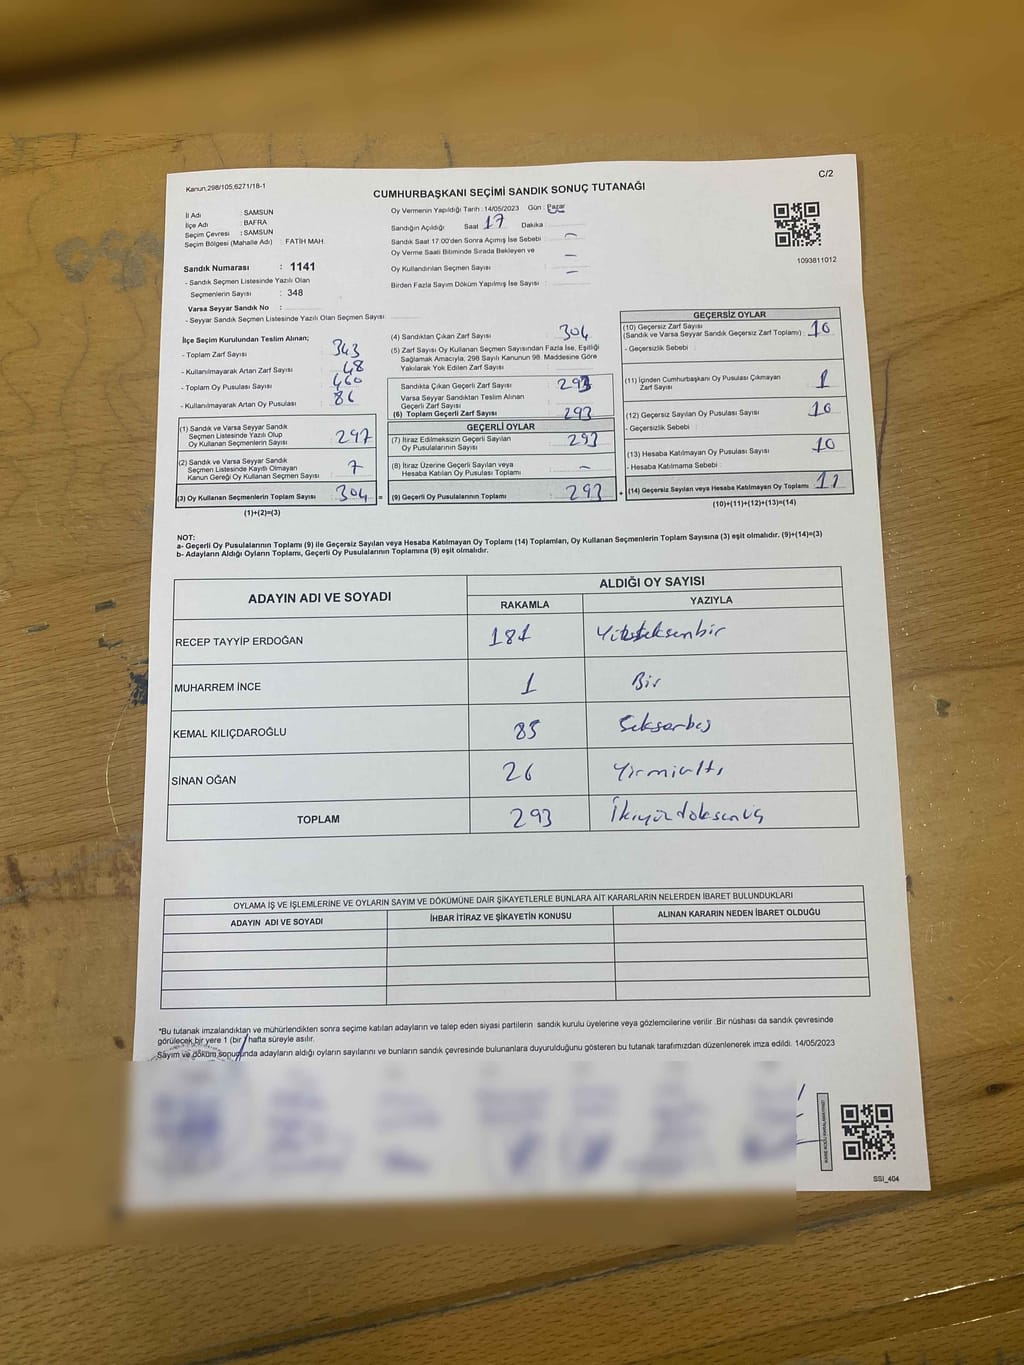 Kanun,298/105,6271/18-1
C/2
CUMHURBAŞKANI SEÇİMİ SANDIK SONUÇ TUTANAĞI
İl Adı : SAMSUN
İlçe Adı : BAFRA
Seçim Çevresi : SAMSUN
Seçim Bölgesi (Mahalle Adı) : FATİH MAH.
Sandık Numarası : 1141
- Sandık Seçmen Listesinde Yazılı Olan
Seçmenlerin Sayısı : 348
Varsa Seyyar Sandık No :
- Seyyar Sandık Seçmen Listesinde Yazılı Olan Seçmen Sayısı:
Oy Vermenin Yapıldığı Tarih : 14/05/2023 Gün : Pazar
Sandığın Açıldığı Saat 17 Dakika :
Sandık Saat 17.00'den Sonra Açımış İse Sebebi : –
Oy Verme Saati Bitiminde Sırada Bekleyen ve
Oy Kullandırılan Seçmen Sayısı : –
Birden Fazla Sayım Döküm Yapılmış İse Sayısı : –
1093811012
İlçe Seçim Kurulundan Teslim Alınan;
- Toplam Zarf Sayısı : 343
- Kullanılmayarak Artan Zarf Sayısı : 48
- Toplam Oy Pusulası Sayısı : 460
- Kullanılmayarak Artan Oy Pusulası : 86
(1) Sandık ve Varsa Seyyar Sandık
Seçmen Listesinde Yazılı Olup
Oy Kullanan Seçmenlerin Sayısı : 297
(2) Sandık ve Varsa Seyyar Sandık
Seçmen Listesinde Kayıtlı Olmayan
Kanun Gereği Oy Kullanan Seçmen Sayısı : 7
(3) Oy Kullanan Seçmenlerin Toplam Sayısı : 304 =
(1)+(2)=(3)
(4) Sandıktan Çıkan Zarf Sayısı : 304
(5) Zarf Sayısı Oy Kullanan Seçmen Sayısından Fazla İse, Eşitliği
Sağlamak Amacıyla, 298 Sayılı Kanunun 98. Maddesine Göre
Yakılarak Yok Edilen Zarf Sayısı :
Sandıkta Çıkan Geçerli Zarf Sayısı : 293
Varsa Seyyar Sandıktan Teslim Alınan
Geçerli Zarf Sayısı :
(6) Toplam Geçerli Zarf Sayısı : 293
GEÇERLİ OYLAR
(7) İtiraz Edilmeksizin Geçerli Sayılan
Oy Pusulalarının Sayısı : 293
(8) İtiraz Üzerine Geçerli Sayılan veya
Hesaba Katılan Oy Pusulası Toplamı : –
(9) Geçerli Oy Pusulalarının Toplamı : 293 +
GEÇERSİZ OYLAR
(10) Geçersiz Zarf Sayısı
(Sandık ve Varsa Seyyar Sandık Geçersiz Zarf Toplamı) : 10
- Geçersizlik Sebebi :
(11) İçinden Cumhurbaşkanı Oy Pusulası Çıkmayan
Zarf Sayısı : 1
(12) Geçersiz Sayılan Oy Pusulası Sayısı : 10
- Geçersizlik Sebebi :
(13) Hesaba Katılmayan Oy Pusulası Sayısı : 10
- Hesaba Katılmama Sebebi :
(14) Geçersiz Sayılan veya Hesaba Katılmayan Oy Toplamı : 11
(10)+(11)+(12)+(13)=(14)
NOT:
a- Geçerli Oy Pusulalarının Toplamı (9) ile Geçersiz Sayılan veya Hesaba Katılmayan Oy Toplamı (14) Toplamları, Oy Kullanan Seçmenlerin Toplam Sayısına (3) eşit olmalıdır. (9)+(14)=(3)
b- Adayların Aldığı Oyların Toplamı, Geçerli Oy Pusulalarının Toplamına (9) eşit olmalıdır.
ADAYIN ADI VE SOYADI
ALDIĞI OY SAYISI
RAKAMLA YAZIYLA
RECEP TAYYİP ERDOĞAN 181 Yüzseksenbir
MUHARREM İNCE 1 Bir
KEMAL KILIÇDAROĞLU 85 Seksenbeş
SİNAN OĞAN 26 Yirmialtı
TOPLAM 293 İkiyüzdoksanüç
OYLAMA İŞ VE İŞLEMLERİNE VE OYLARIN SAYIM VE DÖKÜMÜNE DAİR ŞİKAYETLERLE BUNLARA AİT KARARLARIN NELERDEN İBARET BULUNDUKLARI
ADAYIN ADI VE SOYADI İHBAR İTİRAZ VE ŞİKAYETİN KONUSU ALINAN KARARIN NEDEN İBARET OLDUĞU
*Bu tutanak imzalandıktan ve mühürlendikten sonra seçime katılan adayların ve talep eden siyasi partilerin sandık kurulu üyelerine veya gözlemcilerine verilir .Bir nüshası da sandık çevresinde
görülecek bir yere 1 (bir) hafta süreyle asılır.
Sayım ve döküm sonucunda adayların aldığı oyların sayılarını ve bunların sandık çevresinde bulunanlara duyurulduğunu gösteren bu tutanak tarafımızdan düzenlenerek imza edildi. 14/05/2023
SSI_404